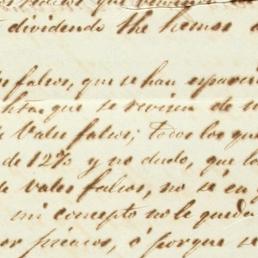 dividendo the hemos
falsos, que se han esparci
que se revisen de n
Vales falsos; todos los que
de 12% y no dudo, que lo
de vales falsos, no sé en
mi concepto no le queda
por picaros, ó porque se